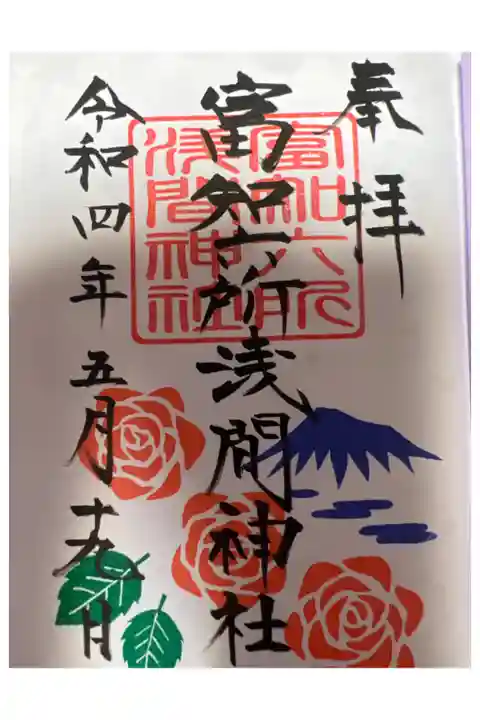 奉拝
富知六所浅間神社
富知六所
浅間神社
令和四年五月十九日